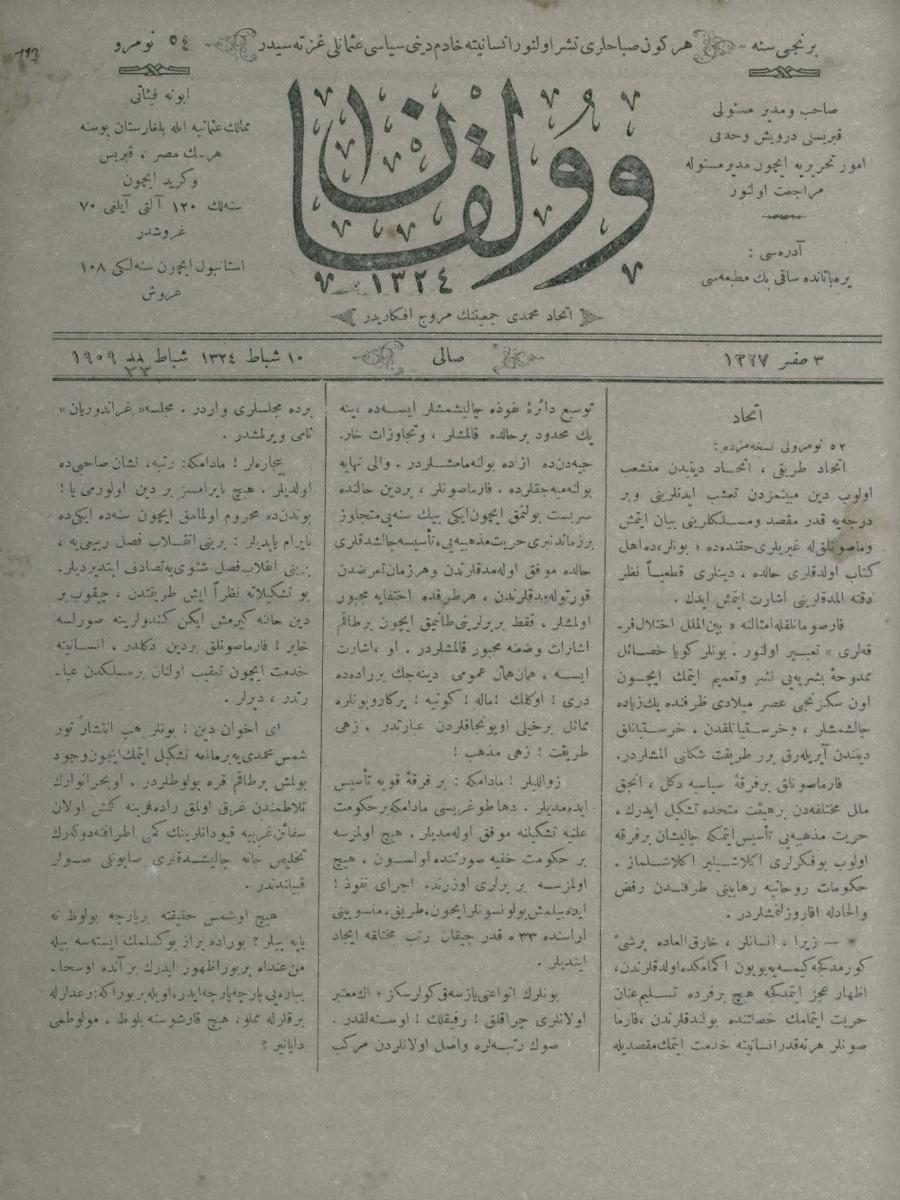 برنجی سنه
هر كون صباحلری نشر اولنور انسانیته خادم دینی سیاسی عثمانلی غزته سیدر
٥٤ نومرو
113
صاحب و مدیر مسئولی
قبریسلی درویش وحدتی
امور تحریریه ایچون مدیر مسئوله
مراجعت اولنور
آدره سی :
یره باتانده ساقی بك مطبعه سی
وولقان
١٣٢٤
ابونه فیئاتی
ممالك عثمانیه ایله بلغارستان بوسنه
هرسك مصر ، قبریس
وكرید ایچون
سنه لك ١٢٠ آلتی آیلغی ٧٠
غروشدر
استانبول ایچون سنه لكی ١٠٨
غروش
اتحاد محمدی جمعیتنك مروج افكاریدر
٣ صفر ١٣٢٧
صالی
١٠ شباط ١٣٢٤ شباط ٢٣ ١٩٠٩
اتحاد
٥٢ نومرولی نسخه مزده :
اتحاد طریقی ، اتحاد دینیدن منشعب
اولوب دین مبینمزدن تعشب ایدنلرینی وبر
درجه یه قدر مقصد ومسلكلرینی بیان ایتمش
وماصونلق له غیریلری حقنده ده ؛ بونلر ،ده اهل
كتاب اولدقلری حالده ، دینلری قطعیاً نظر
دقته المدقلرینی اشارت ایتمش ایدك .
فارمصونلقله امثالنه « بین الملل اختلال فر-
قه لری » تعبیر اولنور . بونلر كویا خصائل
ممدوحهٔ بشریه یی نشر وتعمیم ایتمك ایچون
اون سكزنجی عصر میلادی ظرفنده پك زیاده
چالشمشلر ، وخرستیانلقدن . خرستیانلق
دیندن آیریله رق برر طریقت شكلنی المشلردر .
فارماصونلق برفرقهٔ سیاسیه دكل ، انجق
ملل مختلفه دن برهیئت متحده تشكیل ایدرك .
حریت مذهبیه یی تأسیس ایتمكه چالیشان برفرقه
اولوب بوفكرلری اكلاشیلیر اكلاشلماز .
حكومات روحانیه رهابینی طرفندن رفض
والحادله افاروز لنمشلردر .
* — زیرا ، انسانلر ، خارق العاده برشیٔ
كورمدكجه كیمسه یه بویون اكمامكده اولدقلرندن،
اظهار عجز ایتمدكجه هیچ برفرده تسلیم عنان
حریت ایتمامك خصائنده بولندقلرندن ،فارما
صونلر هرنه قدر انسانیته خدمت ایتمك مقصدیله
توسیع دائرهٔ نفوذه چالیشمشلر ایسه ده ،ینه
پك محدود برحالده قالمشلر ، وتجاوزات خار
جیه دن ده ازاده بولنه مامشلردر . والی نهایه
بولنه میه جقلرده . فارماصونلر ، بردین حالنده
سربست بولنمق ایچون ایكی بیك سنه یی متجاوز
برزماندنبری حریت مذهبیه یی ، تأسیسه چالشدقلری
حالده موفق اوله مدقلرندن وهر زمان تعرضدن
قورتوله مدقلرندن ، هرطرفده اختفایه مجبور
اولمشلر ، فقط بربرلرینی طانیمق ایچون برطاقم
اشارات وضعنه مجبور قالمشلردر . او ،اشارت
ایسه ، همان همان عمومی دینه جك برراده ده
دری ! اوكلك !ماله ! كونیه ! پركارونلره
مماثل برخیلی اویونجاقلردن عبارتدر . زهی
طریقت ! زهی مذهب !
زواللیلر ! مادامكه : بر فرقهٔ قویه تأسیس
ایده مدیلر . دها طوغریسی مادامكه برحكومت
علنیه تشكیلنه موفق اوله مدیلر . هیچ اولمزسه
بر حكومت خفیه صورتنده اولسون ، هیچ
اولمزسه بر برلری اوزرنده اجرای نفوذ !
ایده بیلمش بولونسونلر ایچون ، طریق ، منسوبینی
اراسنده ٣٣ ه قدر چیقان رتب مختلفه ایجاد
ایتدیلر .
بونلرك انواعنی یازسه ق كولرسكز ؛ اك معتبر
اولانلری چراقلق ! رفیقلك ! اوسته لقدر .
صوك رتبه لره واصل اولانلردن مركب
برده مجلسلری واردر . مجلسه« غراندوریان »
نامی ویرلمشدر .
بیچاره لر ! مادامكه: رتبه، نشان صاحبی ده
اولدیلر . هیچ بایرامسز بر دین اولورمی یا !
بوندن ده محروم اولمامق ایچون سنه ده ایكی ده
بایرام یاپدیلر : برینی انقلاب فصل ربیعی یه ،
برینی انقلاب فصل شتوی یه تصادف ایتدیردیلر.
بو تشكیلاته نظراً ایش طریقتدن ، چیقوب بر
دین حالنه كیرمش ایكن كندولرینه صورلسه
خایر ! فارماصونلق بردین دكلدر ، انسانیته
خدمت ایچون تعقیب اولنان برمسلكدن عبا-
رتدر ، دیرلر .
ای اخوان دین ! بونلر هپ انتشار نور
شمس محمدی یه برمانعه تشكیل ایتمك ایچون وجود
بولمش برطاقم قره بولوطلردر . او بحر انوارك
تلاطمندن غرق اولمق راده لرینه كلمش اولان
سفائن غربیه قپودانلرینك كمی اطرافنه دوكه رك
تخلیص جانه چالیشدقلری صابونلی صولر
قبیلندندر .
هیچ اوشمس حقیقته برپارچه بولوط نه
یاپه بیلر ؟ بوراده براز یوكسلمك ایسته سه بیله
من عندالله بربورا ظهور ایدرك بر آنده اوسحا-
بپاره یی پارچه پارچه ایدر. اویله بربورا كه : رعدلرله
برقلرله مملو، هیچ قارشوسنه بلوط . مولوطمی
دایانیر ؟